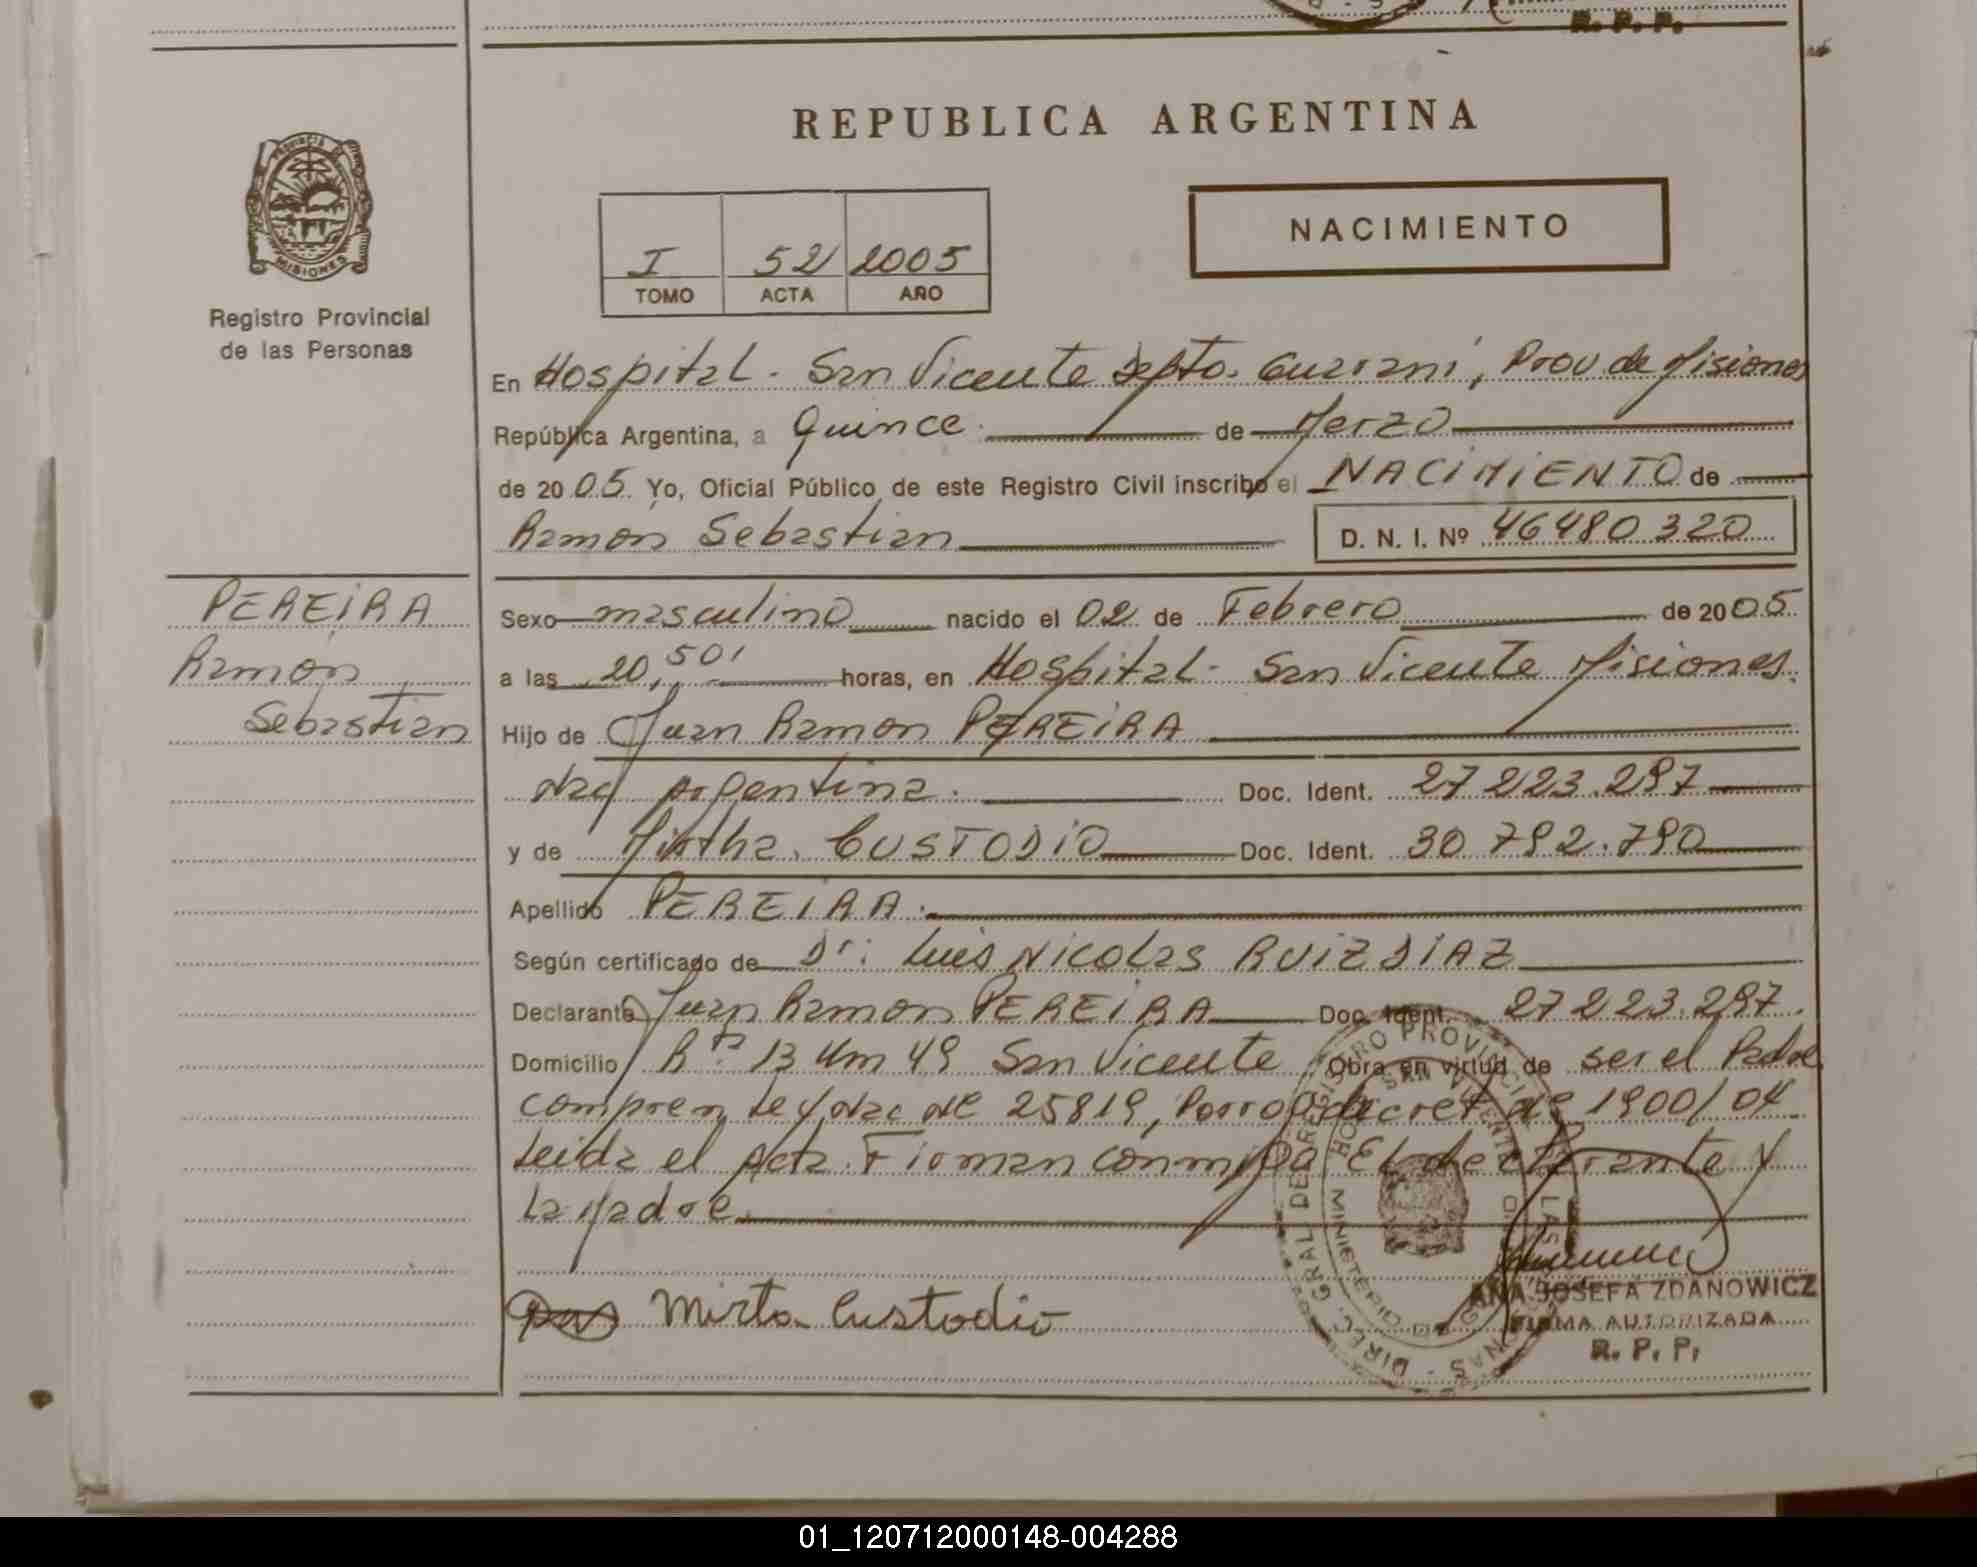 R. P. P.
REPUBLICA ARGENTINA
PROVINCIA DE
MISIONES
Registro Provincial
de las Personas
NACIMIENTO
I 52 2005
TOMO ACTA AÑO
En Hospital - San Vicente Depto. Guarani, Prov de Misiones
República Argentina, a Quince de Marzo
de 2005. Yo, Oficial Público de este Registro Civil inscribo el NACIMIENTO de
Ramon Sebastian D. N. I. Nº 46480320
PEREIRA
Ramón
Sebastian
Sexo masculino nacido el 02 de Febrero de 2005
a las 20,50' horas, en Hospital - San Vicente Misiones.
Hijo de Juan Ramon PEREIRA
Nac Argentina. Doc. Ident. 27 223.297
y de Mirtha. CUSTODIO Doc. Ident. 30 792.790
Apellido PEREIRA.
Según certificado de Dr: Luis Nicolas RUIZ DIAZ
Declarante Juan Ramon PEREIRA Doc. Ident. 27 223.297.
Domicilio Rta 13 Km 49 San Vicente Obra en virtud de ser el Padre
Ley de 25819, decret de 1900/04
Leida el Acta. Firman conmigo El declarante y
La Madre.
Mirta Custodio
DIREC. GRAL DE REGISTRO PROVINCIAL DE LAS PERSONAS
HOSPITAL SAN VICENTE
MINISTERIO DE GOBIERNO
ANA JOSEFA ZDANOWICZ
FIRMA AUTORIZADA
R. P. P.
01_120712000148-004288